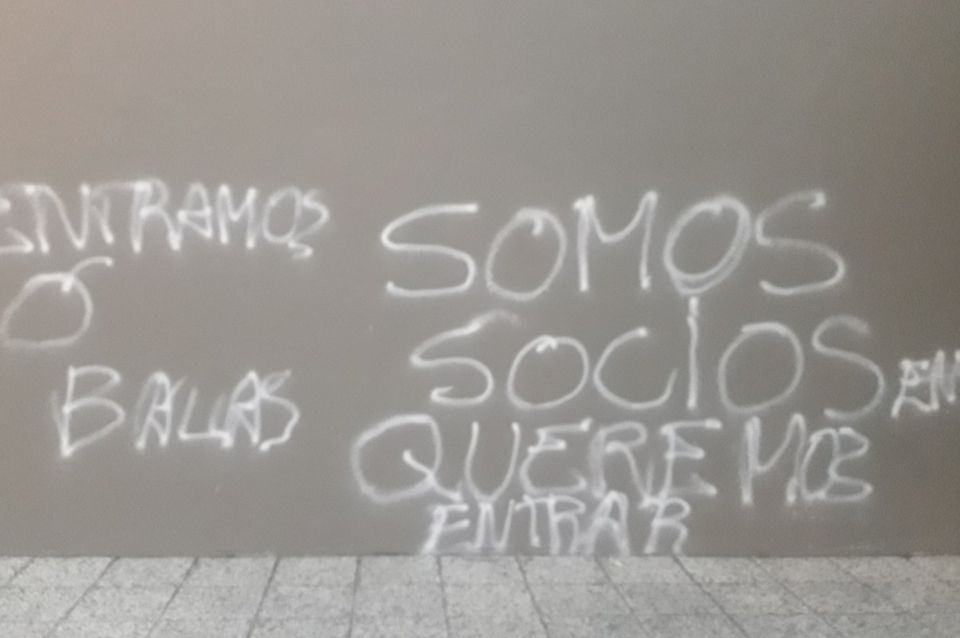 ENTRAMOS
Ó
BALAS
SOMOS
SOCIOS
QUEREMOS
ENTRAR
EN